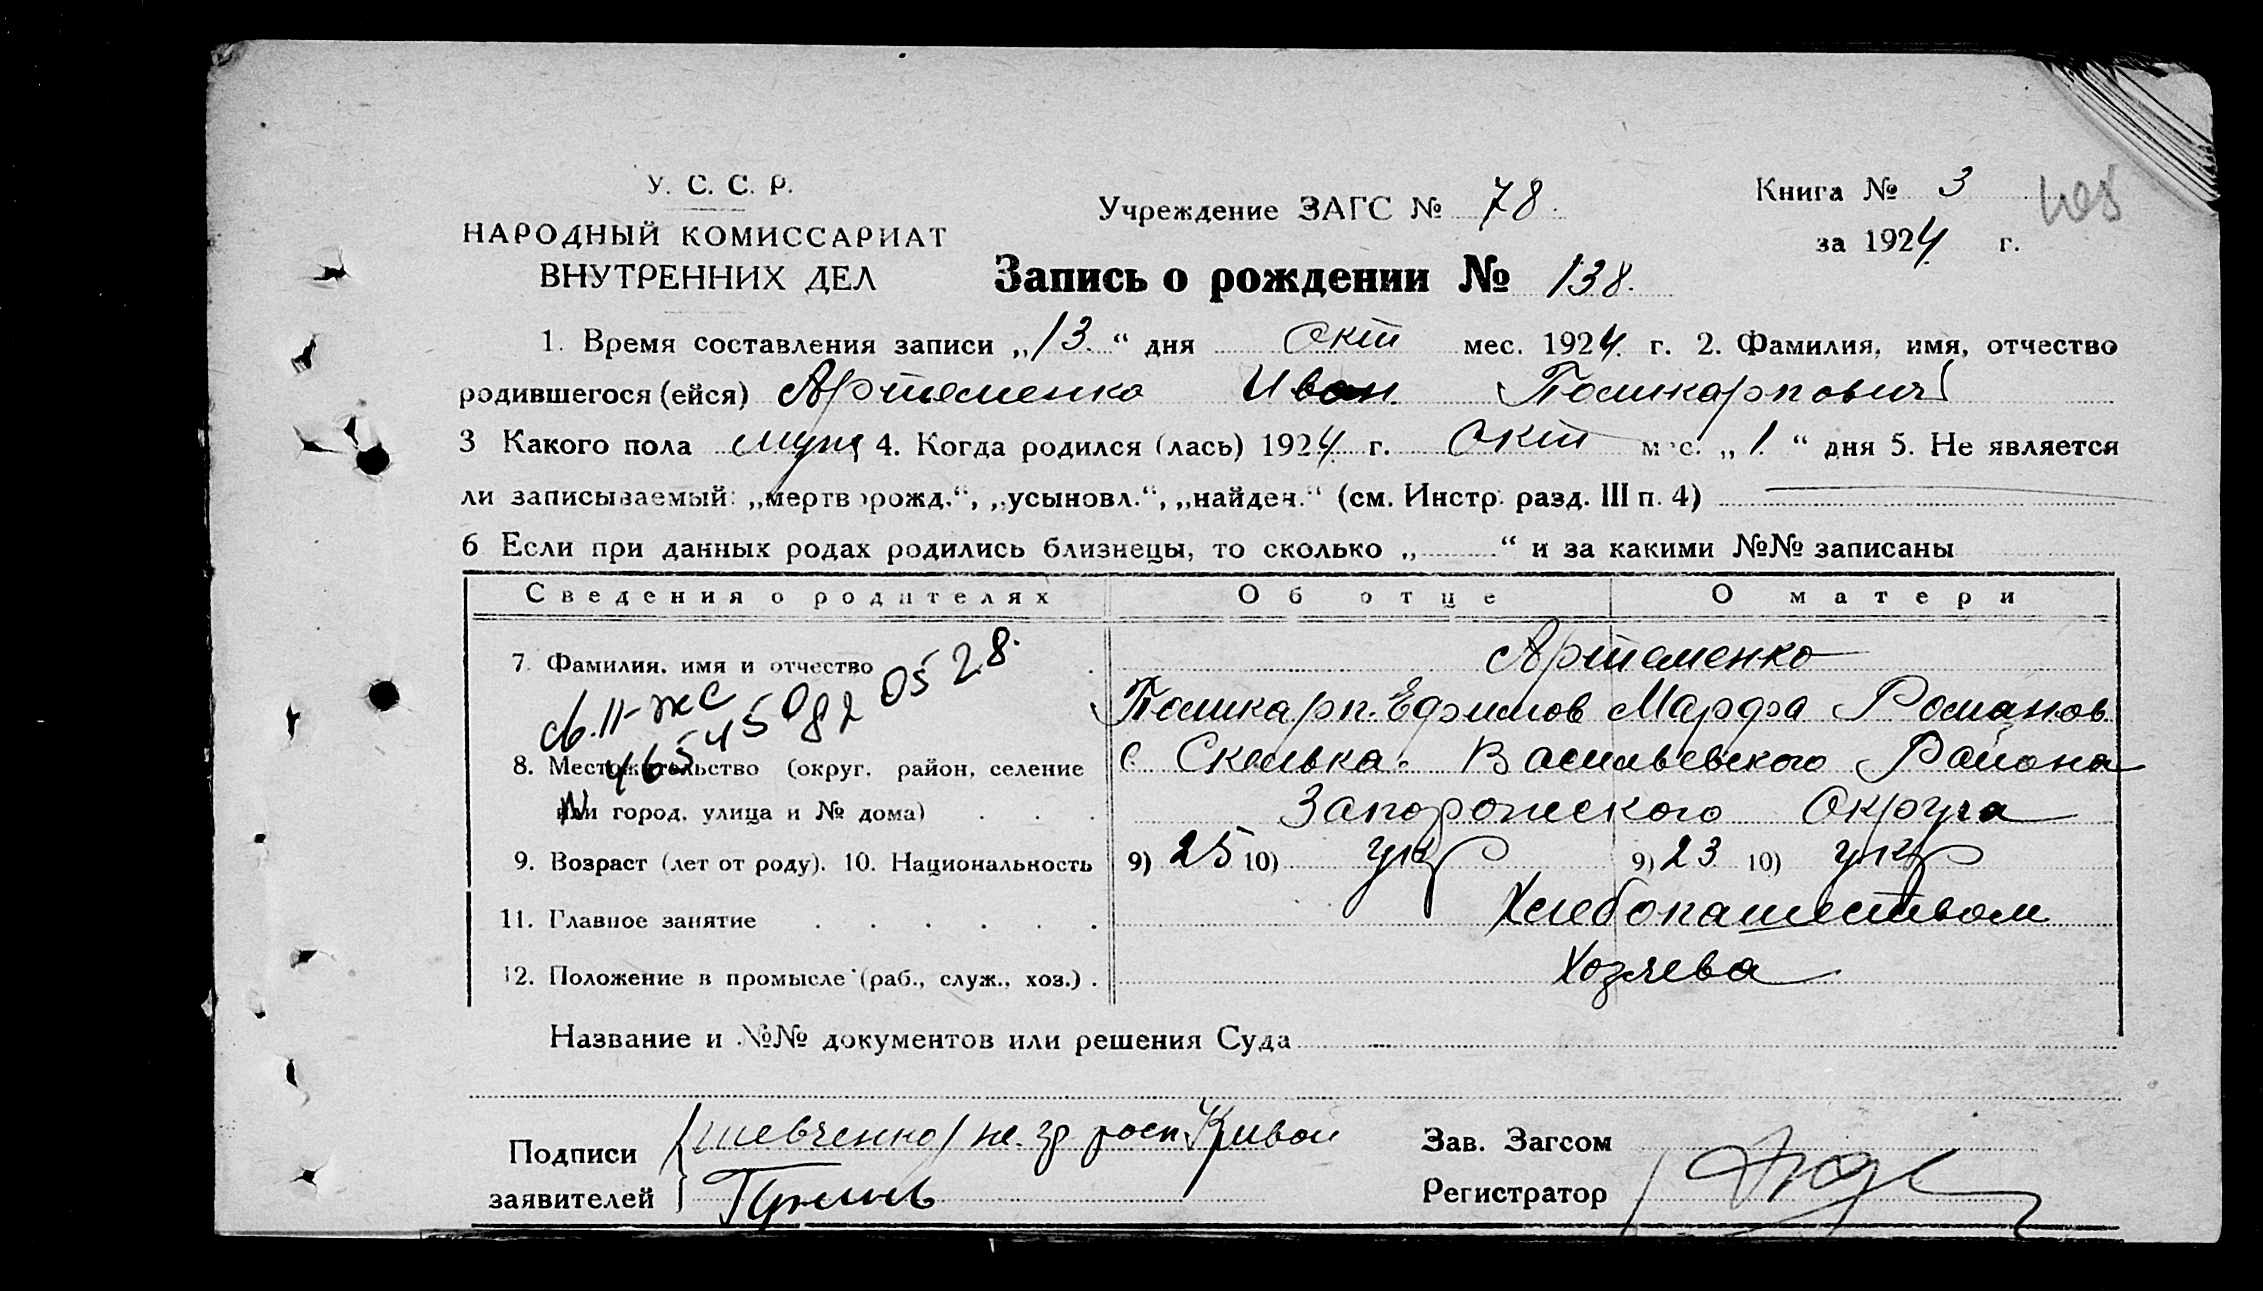 У. С. С. Р.
НАРОДНЫЙ КОМИССАРИАТ
ВНУТРЕННИХ ДЕЛ
Учреждение ЗАГС № 78
Книга № 3
за 1924 г.
Запись о рождении № 138.
1. Время составления записи „13.“ дня окт мес. 1924 г. 2. Фамилия, имя, отчество
родившегося (ейся) Артеменко Иван Поликарпович
3 Какого пола муж 4. Когда родился (лась) 1924 г. Окт мес. „1.“ дня 5. Не является
ли записываемый: „мертворожд.“, „усыновл.“, „найден.“ (см. Инстр. разд. III п. 4)
6 Если при данных родах родились близнецы, то сколько „ “ и за какими №№ записаны
Сведения о родителях Об отце О матери
7. Фамилия, имя и отчество Артеменко
Поликарп. Ефимов Марфа Романов
8. Местожительство (округ, район, селение с. Скелька Васильевского Района
или город, улица и № дома) Запорожского Округа
св. II-жс
465450820528.
9. Возраст (лет от роду). 10. Национальность 9) 25 10) укр 9) 23 10) укр
11. Главное занятие Хлебопашеством
12. Положение в промысле (раб., служ., хоз.) Хозяева
Название и №№ документов или решения Суда
Подписи заявителей Шевченко
Зав. Загсом
Регистратор